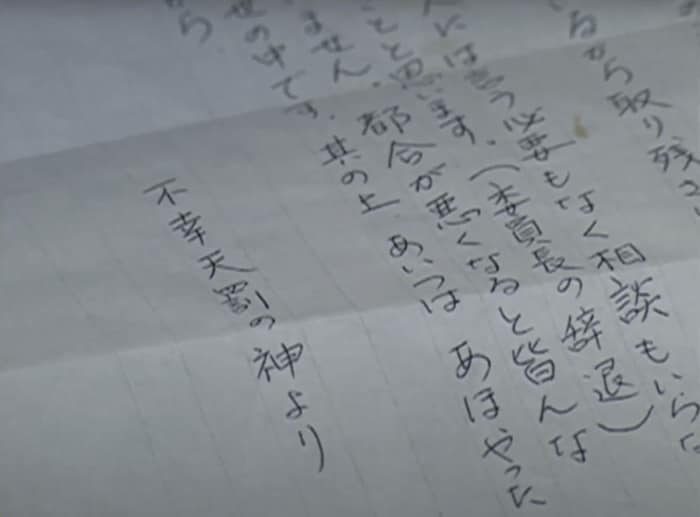 るから取り残さ
には言う必要もなく相談もいらな
と思います。(委員長の辞退)
ません。都合が悪くなると皆んな
せの中です。其の上 あいつは あほやった
から
不幸天罰の神より